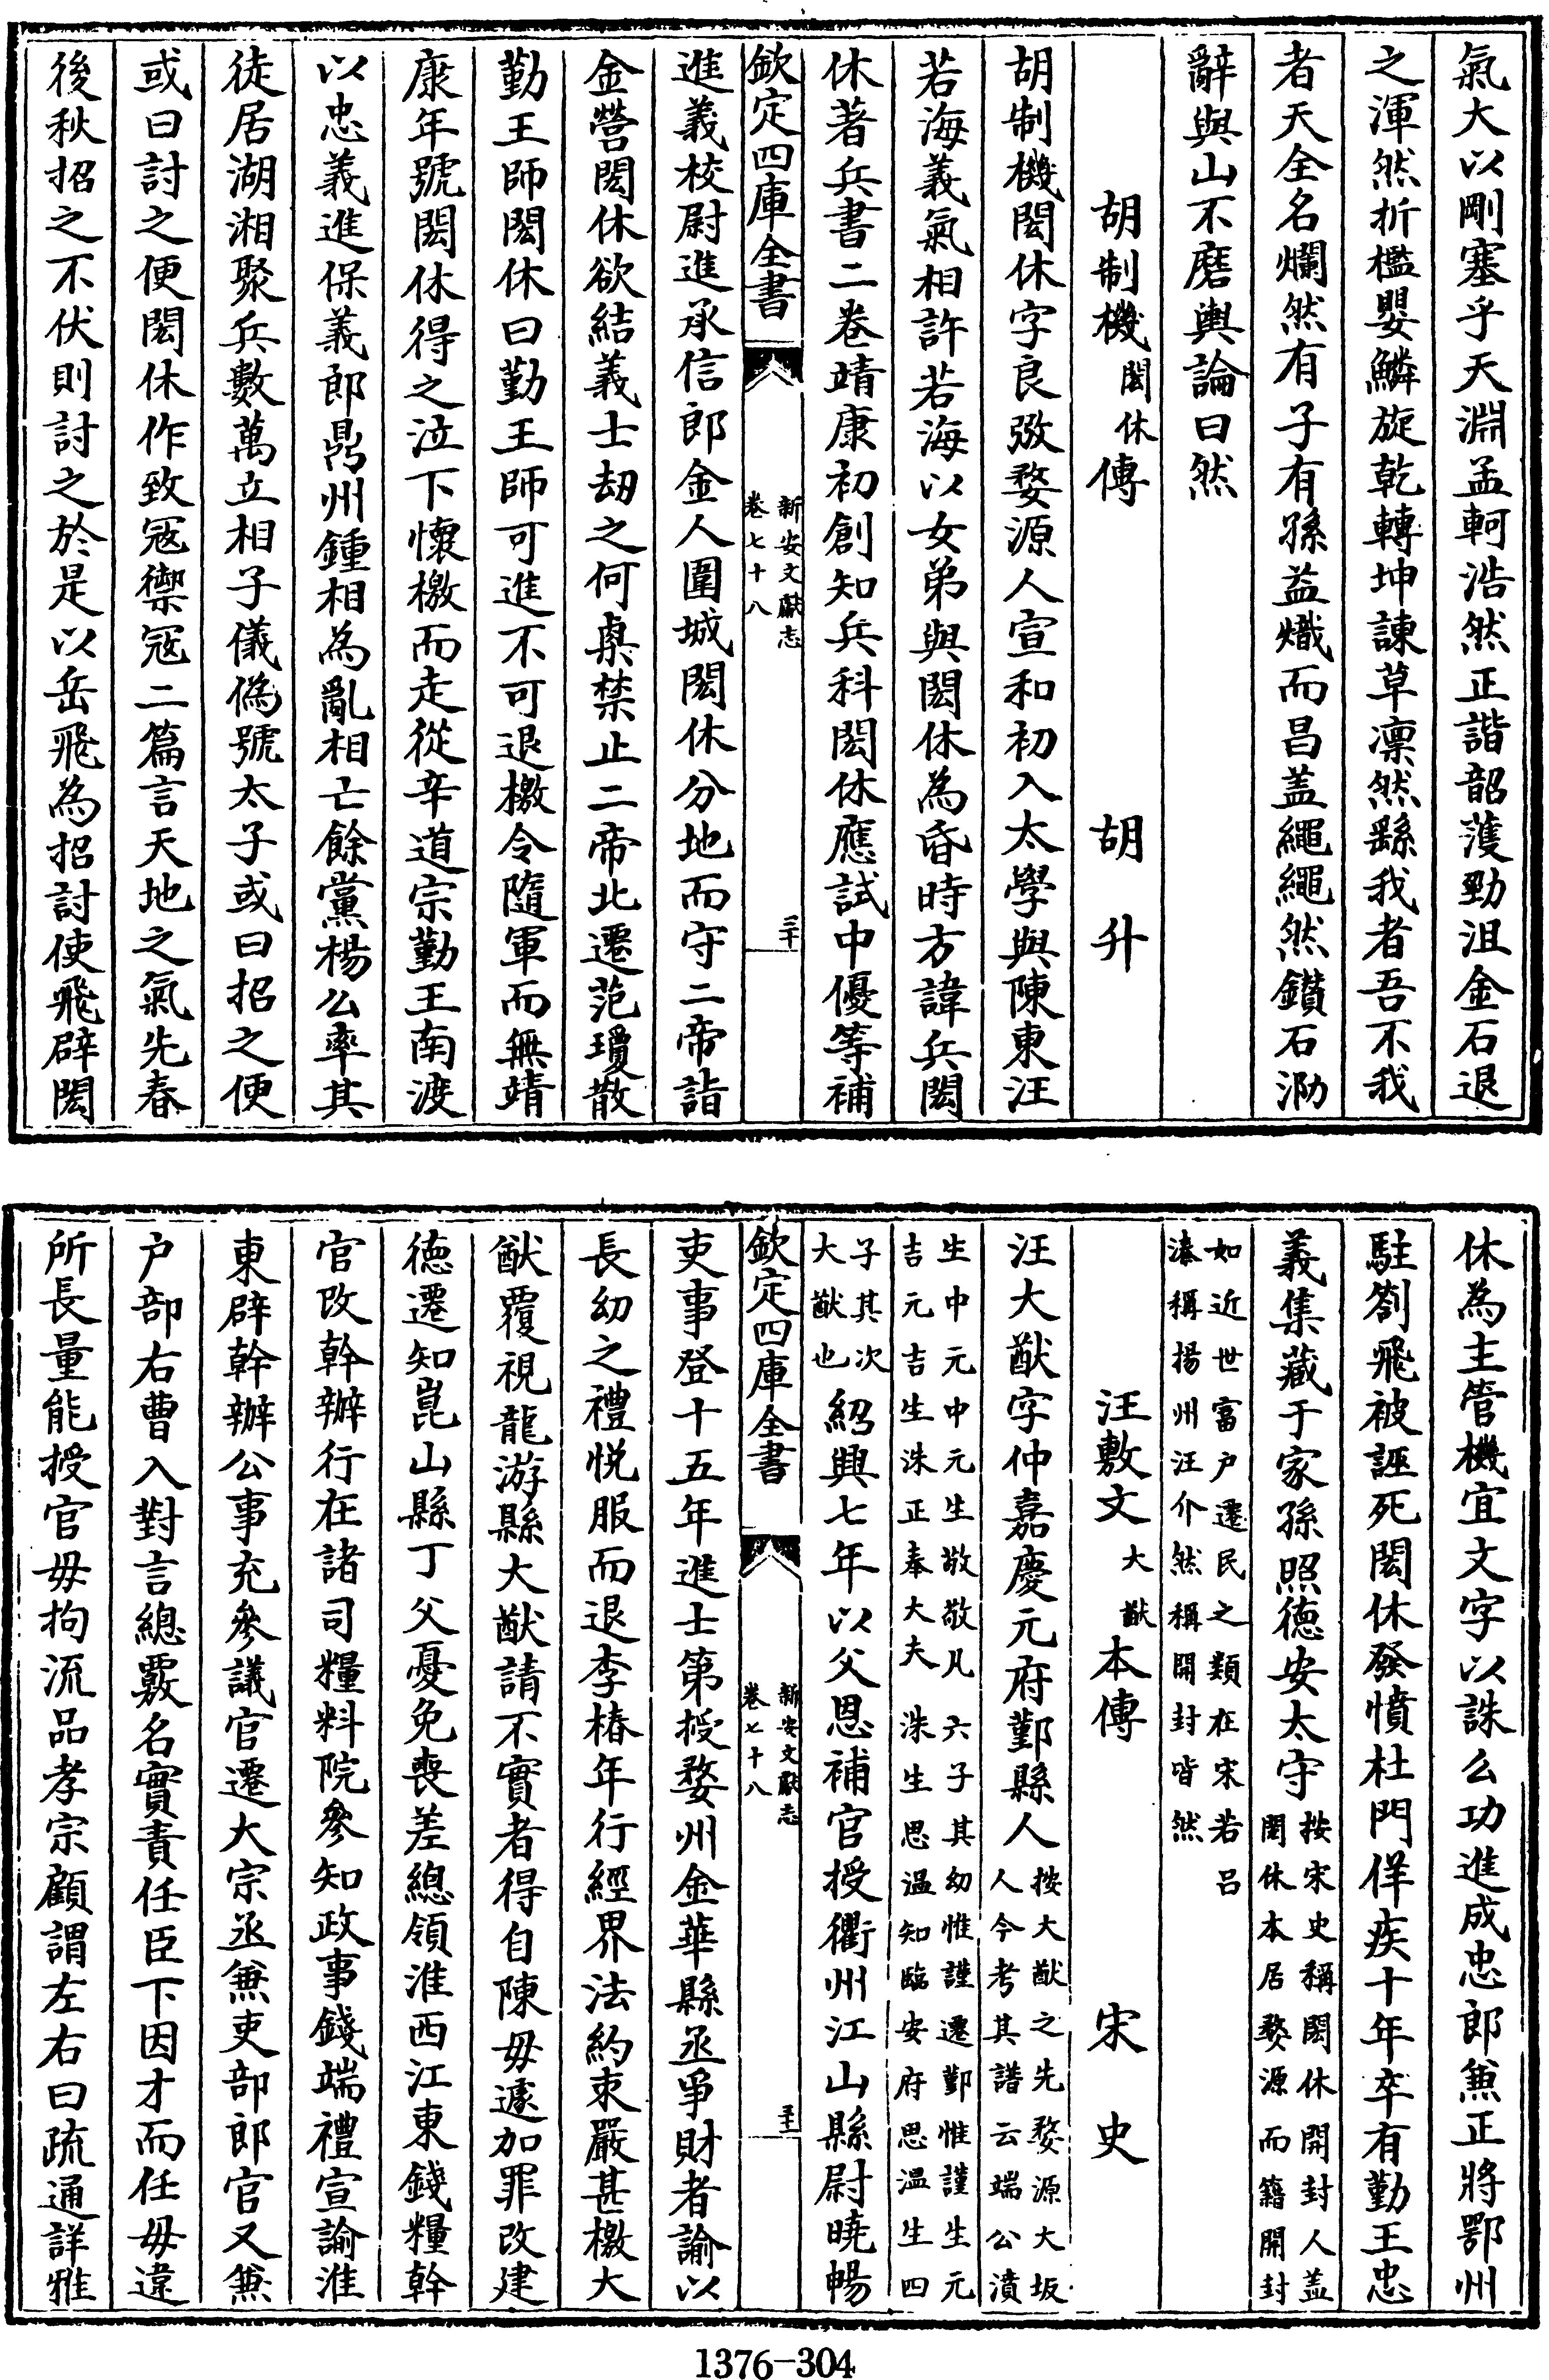 氣大以剛塞乎天淵孟軻浩然正諧韶頀勁沮金石退
之渾然折檻嬰鱗旋乾轉坤諫草凛然繇我者吾不我
者天全名爛然有子有孫益熾而昌盖繩繩然鑽石泐
辭與山不磨輿論曰然
胡制機閎休傳 胡升
胡制機閎休字良弢婺源人宣和初入太學與陳東汪
若海義氣相許若海以女弟與閎休為昏時方諱兵閎
休著兵書二卷靖康初創知兵科閎休應試中優等補
欽定四庫全書 新安文獻志 卷七十八 三十
進義校尉進承信郎金人圍城閎休分地而守二帝詣
金營閎休欲結義士刼之何㮚禁止二帝北遷范瓊散
勤王師閎休曰勤王師可進不可退檄令隨軍而無靖
康年號閎休得之泣下懷檄而走從辛道宗勤王南渡
以忠義進保義郎鼎州鍾相為亂相亡餘黨楊么率其
徒居湖湘聚兵數萬立相子儀偽號太子或曰招之便
或曰討之便閎休作致冦禦冦二篇言天地之氣先春
後秋招之不伏則討之於是以岳飛為招討使飛辟閎
休為主管機宜文字以誅么功進成忠郎兼正將鄂州
駐劄飛被誣死閎休發憤杜門佯疾十年卒有勤王忠
義集藏于家孫照德安太守按宋史稱閎休開封人盖閎休本居婺源而籍開封
如近世富户遷民之類在宋若吕溱稱揚州汪介然稱開封皆然
汪敷文大猷本傳 宋史
汪大猷字仲嘉慶元府鄞縣人按大猷之先婺源大坂人今考其譜云端公濆
生中元中元生敬敬凡六子其幼惟謹遷鄞惟謹生元吉元吉生洙正奉大夫洙生思温知臨安府思温生四
子其次大猷也紹興七年以父恩補官授衢州江山縣尉曉暢
欽定四庫全書 新安文獻志 卷七十八 三十一
吏事登十五年進士第授婺州金華縣丞爭財者諭以
長幼之禮悦服而退李椿年行經界法約束嚴甚檄大
猷覆視龍游縣大猷請不實者得自陳毋遽加罪改建
德遷知崑山縣丁父憂免喪差總領淮西江東錢糧幹
官改幹辦行在諸司糧料院參知政事錢端禮宣諭淮
東辟幹辦公事充參議官遷大宗丞兼吏部郎官又兼
户部右曹入對言總覈名實責任臣下因才而任毋違
所長量能授官毋拘流品孝宗顧謂左右曰疏通詳雅
1376-304